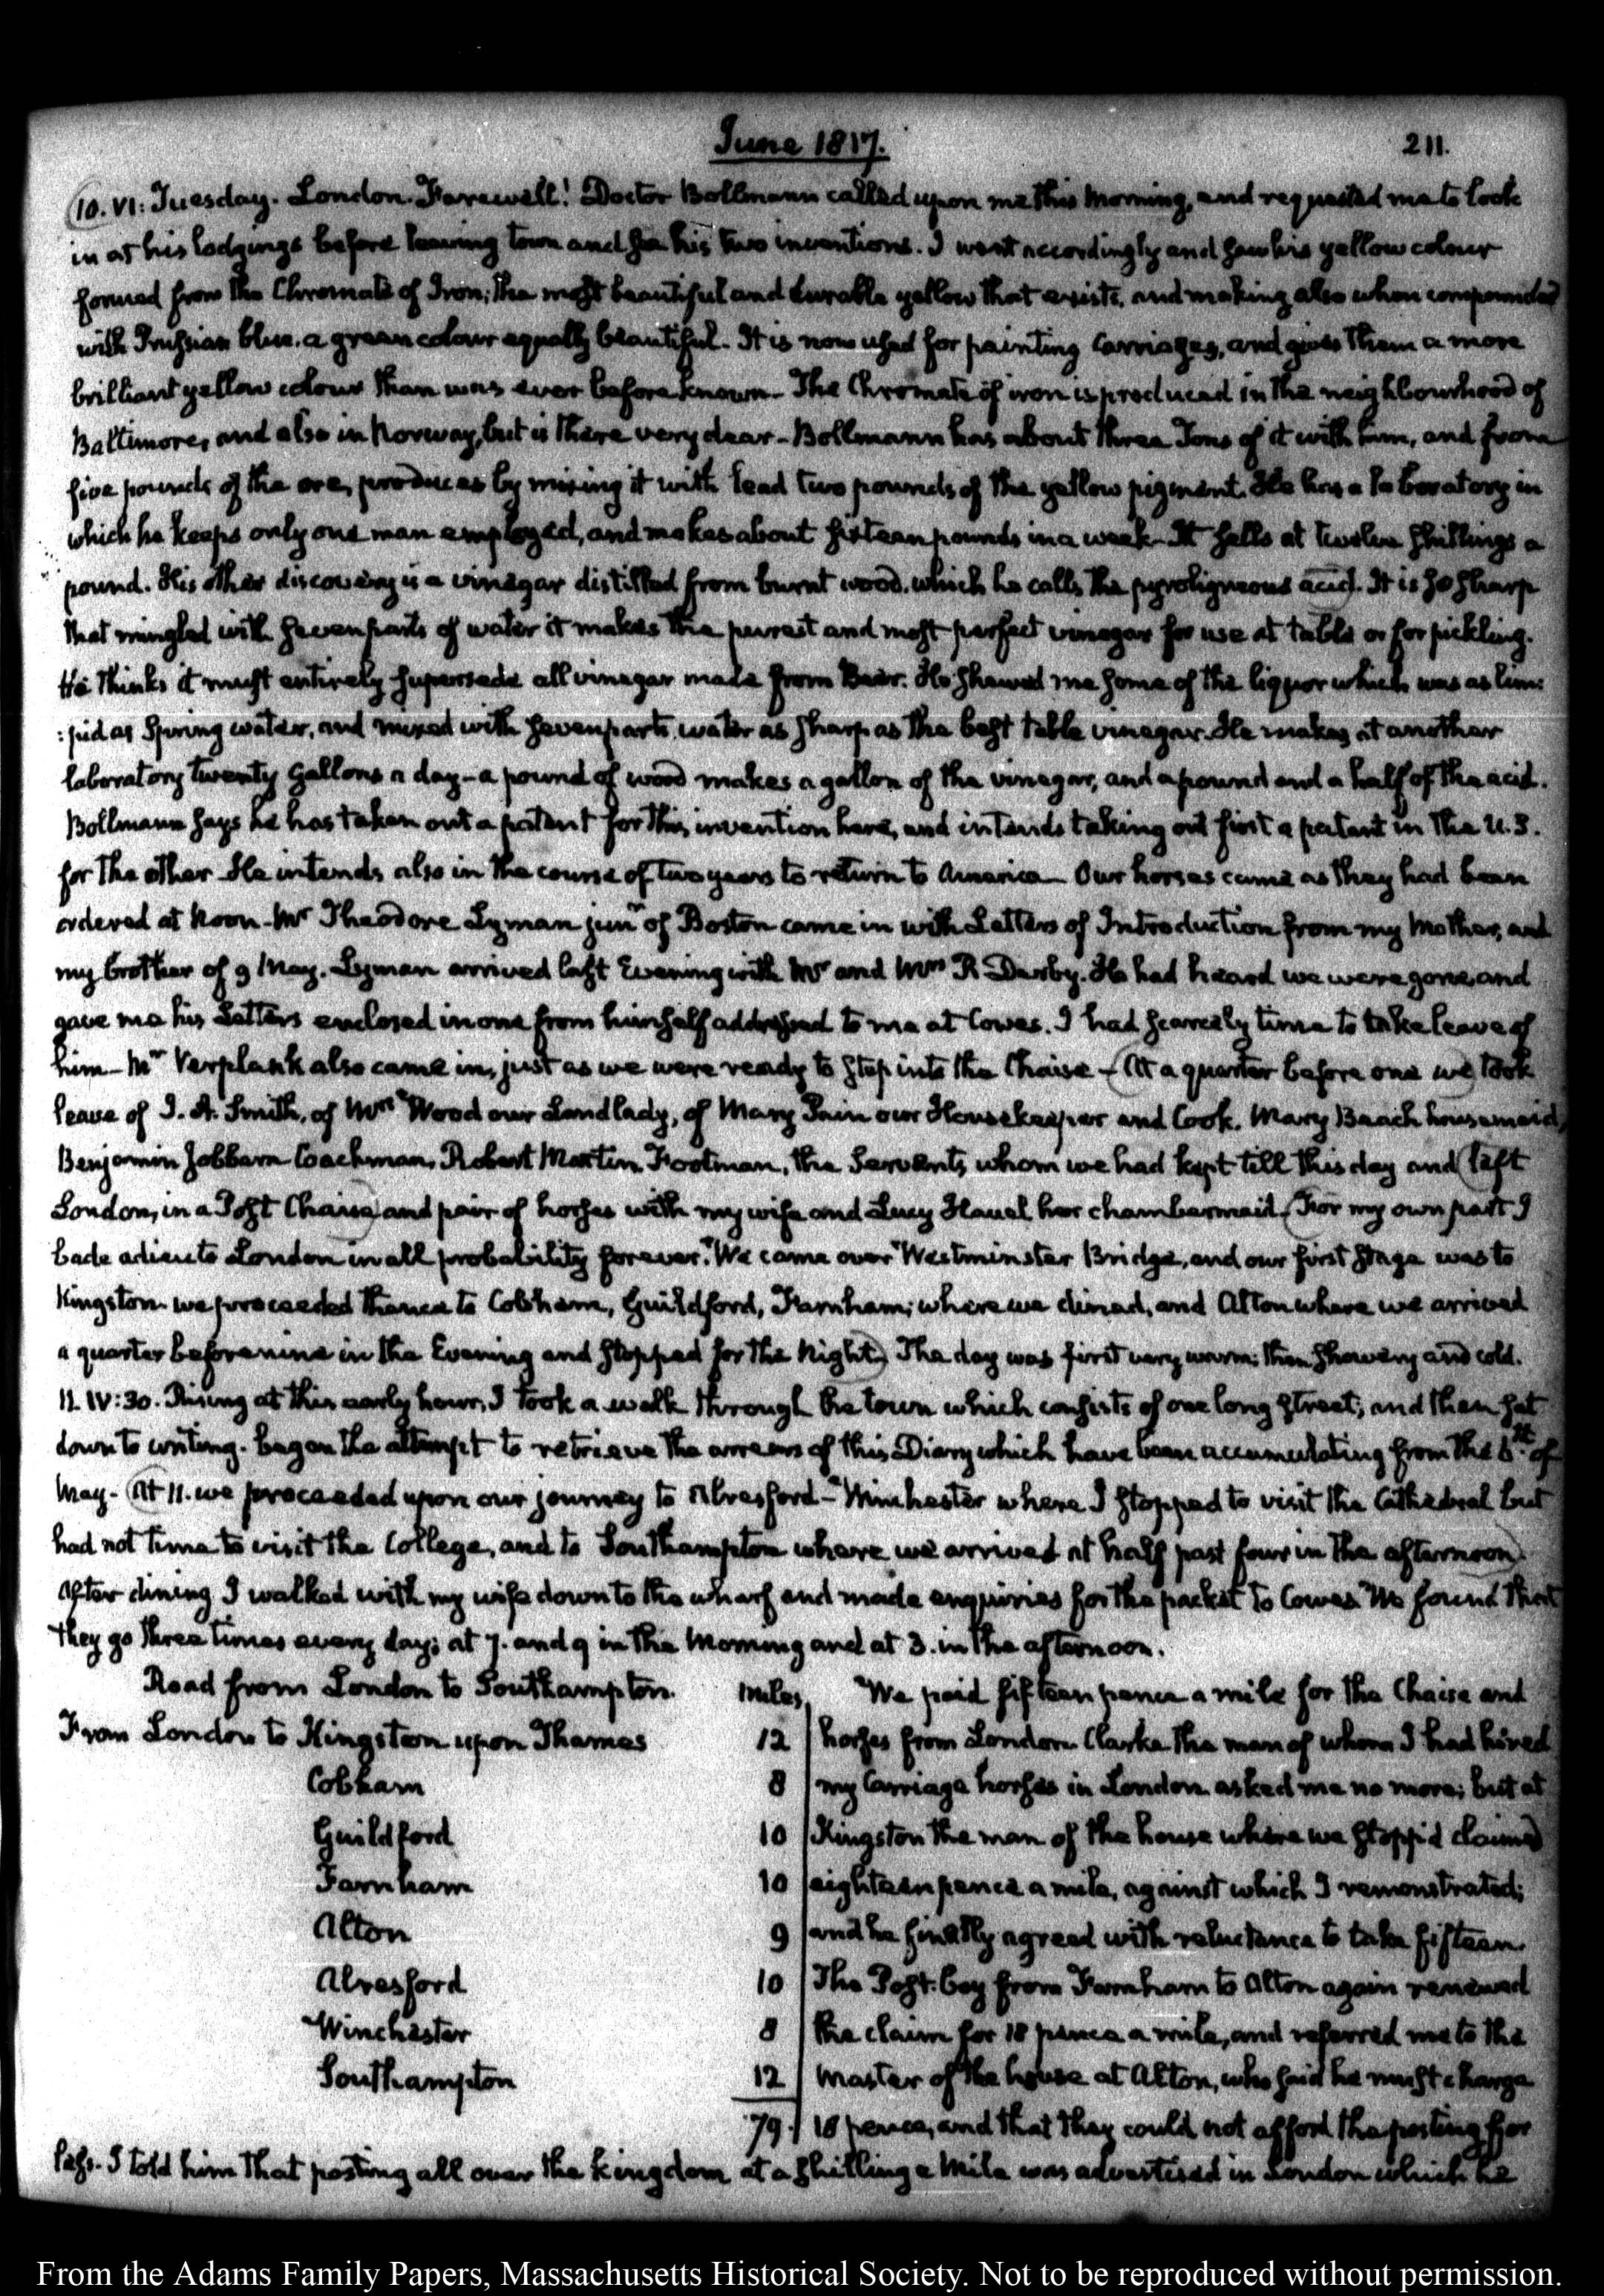 June 1817.
211.
10. VI: Tuesday. London. Farewell! Doctor Bollmann called upon me this Morning, and requested me to look
in at his lodgings before leaving town and see his two inventions. I went accordingly and saw his yellow colour
formed from the Chromate of Iron; the most beautiful and durable yellow that exists, and making also when compounded
with Prussian blue, a green colour equally beautiful. It is now used for painting Carriages, and gives them a more
brilliant yellow colour than was ever before known. The Chromate of iron is produced in the neighbourhood of
Baltimore, and also in Norway, but is there very dear - Bollmann has about three Tons of it with him, and from
five pounds of the ore, produces by mixing it with lead two pounds of the yellow pigment. He has a laboratory in
which he keeps only one man employed, and makes about sixteen pounds in a week - It sells at twelve shillings a
pound. His other discovery is a vinegar distilled from burnt wood, which he calls the pyroligneous acid. It is so sharp
that mingled with seven parts of water it makes the purest and most perfect vinegar for use at table or for pickling.
He thinks it must entirely supersede all vinegar made from Beer. He shewed me some of the liquor which was as lim:
:pid as Spring water, and mixed with seven parts water as sharp as the best table vinegar. He makes at another
laboratory twenty gallons a day - a pound of wood makes a gallon of the vinegar, and a pound and a half of the acid.
Bollmann says he has taken out a patent for this invention here, and intends taking out first a patent in the U.S.
for the other He intends also in the course of two years to return to America - Our horses came as they had been
ordered at Noon - Mr Theodore Lyman junr of Boston came in with Letters of Introduction from my Mother, and
my brother of 9 May. Lyman arrived last Evening with Mr and Mrs R Derby. He had heard we were gone, and
gave me his Letters enclosed in one from himself addressed to me at Cowes. I had scarcely time to take leave of
him - Mr Verplank also came in, just as we were ready to step into the Chaise - (At a quarter before one we) took
leave of J. A. Smith, of Mrs Wood our Landlady, of Mary Pain our Housekeeper and Cook. Mary Beach housemaid,
Benjamin Jobbern Coachman, Robert Martin Footman, the Servants whom we had kept till this day and (left
London, in a Post Chaise) and pair of horses with my wife and Lucy Houel her chambermaid. (For my own part I
bade adieu to London in all probability forever. We came over Westminster Bridge, and our first stage was to
Kingston. we proceeded thence to Cobham, Guildford, Farnham; where we dined, and Alton where we arrived
a quarter before nine in the Evening and stopped for the Night.) The day was first very warm; then showery and cold.
11. IV:30. Rising at this early hour, I took a walk through the town which consists of one long street; and then sat
down to writing. began the attempt to retrieve the arrears of this Diary which have been accumulating from the 6th of
May - (At 11. we proceeded upon our journey to Alresford - Winchester where I stopped to visit the Cathedral but
had not time to visit the College, and to Southampton where we arrived at half past four in the afternoon.)
After dining I walked with my wife down to the wharf and made enquiries for the packet to Cowes We found that
they go three times every day; at 7. and 9 in the Morning and at 3. in the afternoon.
Road from London to Southampton. Miles,
From London to Kingston upon Thames 12
Cobham 8
Guildford 10
Farnham 10
Alton 9
Alresford 10
Winchester 8
Southampton 12
79.
We paid fifteen pence a mile for the Chaise and
horses from London. Clarke the man of whom I had hired
my Carriage horses in London asked me no more; but at
Kingston the man of the house where we stopp'd claimed
eighteen pence a mile, against which I remonstrated;
and he finally agreed with reluctance to take fifteen.
The Post-boy from Farnham to Alton again renewed
the claim for 18 pence a mile, and referred me to the
Master of the house at Alton, who said he must charge
18 pence, and that they could not afford the posting for
less. I told him that posting all over the kingdom at a shilling a mile was advertised in London which he
From the Adams Family Papers, Massachusetts Historical Society. Not to be reproduced without permission.